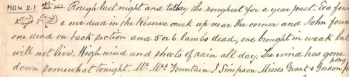 MON 21 Rough last night and today the roughest for a year past. Ten four
ewe dead in the Reserve onek up near the corner and John found
one dead on back friction and 5 or 6 lambs dead, one bought in weak but
will not live. High wind and sheets of rain all day. The wind has gone
down somewhat tonight. Mr Mrs Fountain J Simpson Misses Grant & Gadon
pong